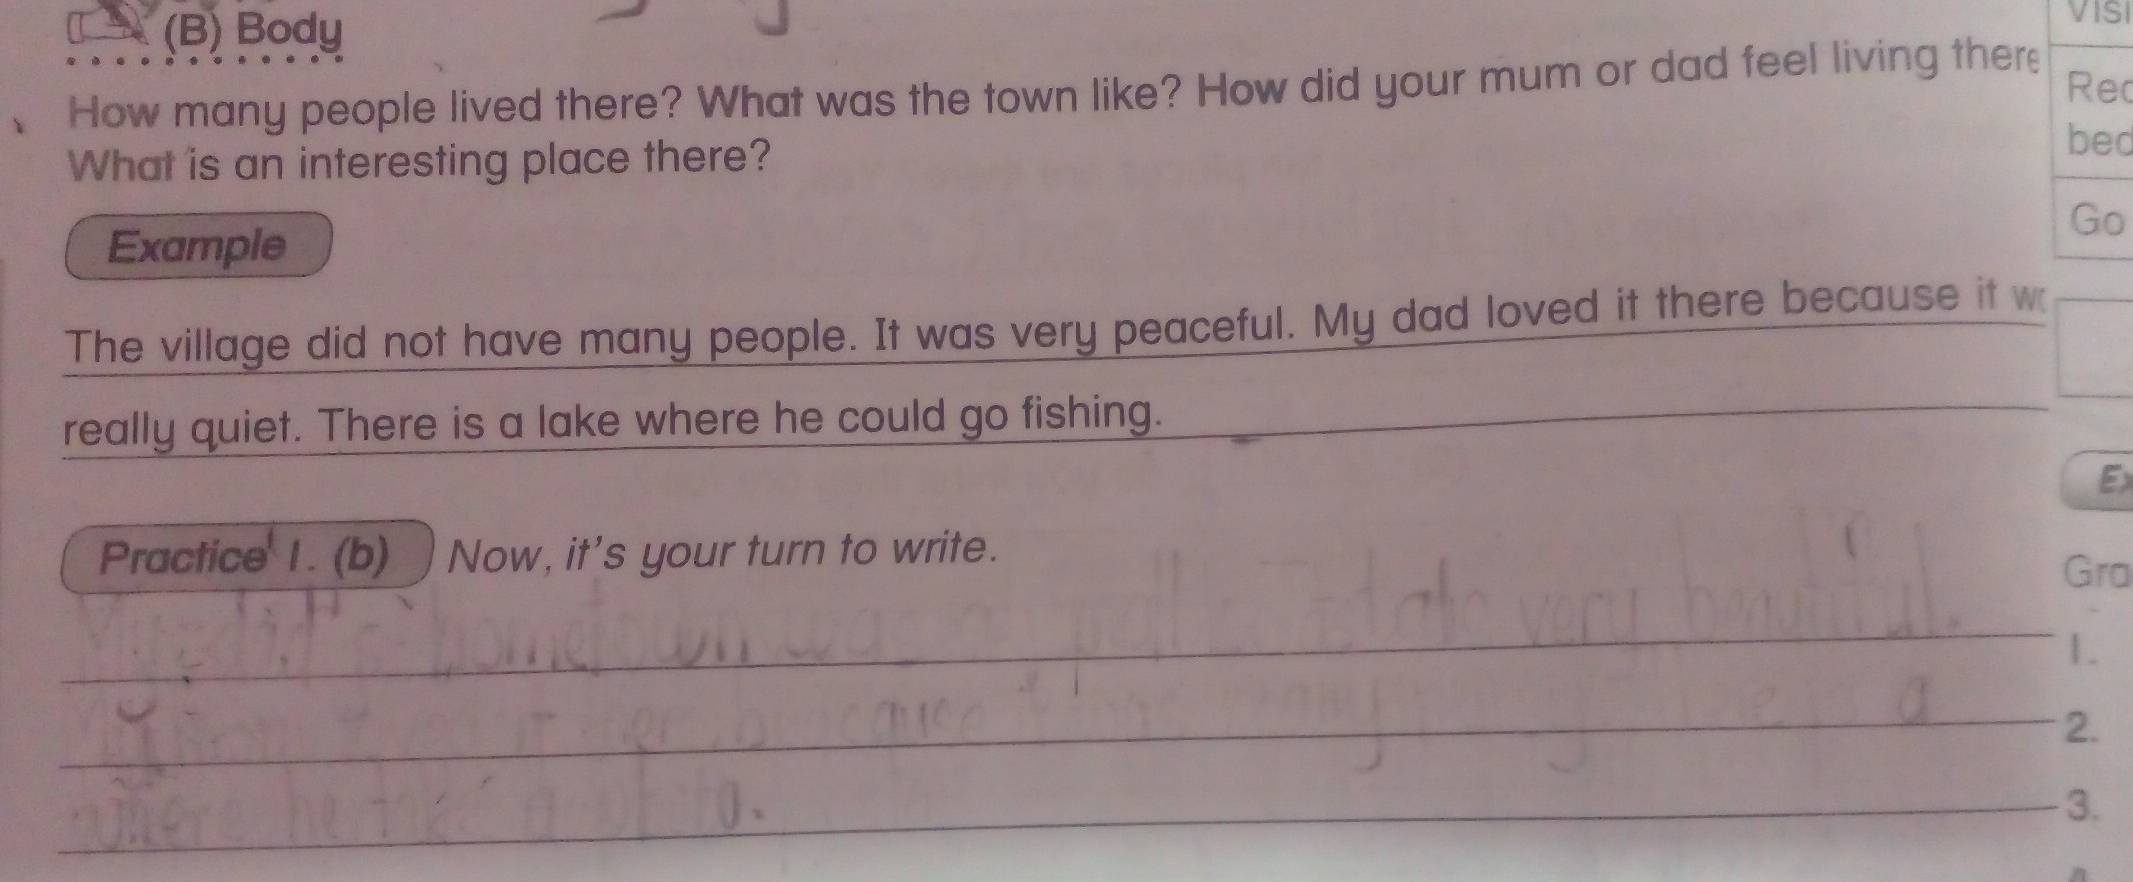 (B) Body
How many people lived there? What was the town like? How did your mum or dad feel living there
What is an interesting place there?
Example
The village did not have many people. It was very peaceful. My dad loved it there because it
really quiet. There is a lake where he could go fishing.
Practice 1. (b) Now, it's your turn to write.
hometown was very beautiful.
because many a
where he to.
Go
1.
2.
3.